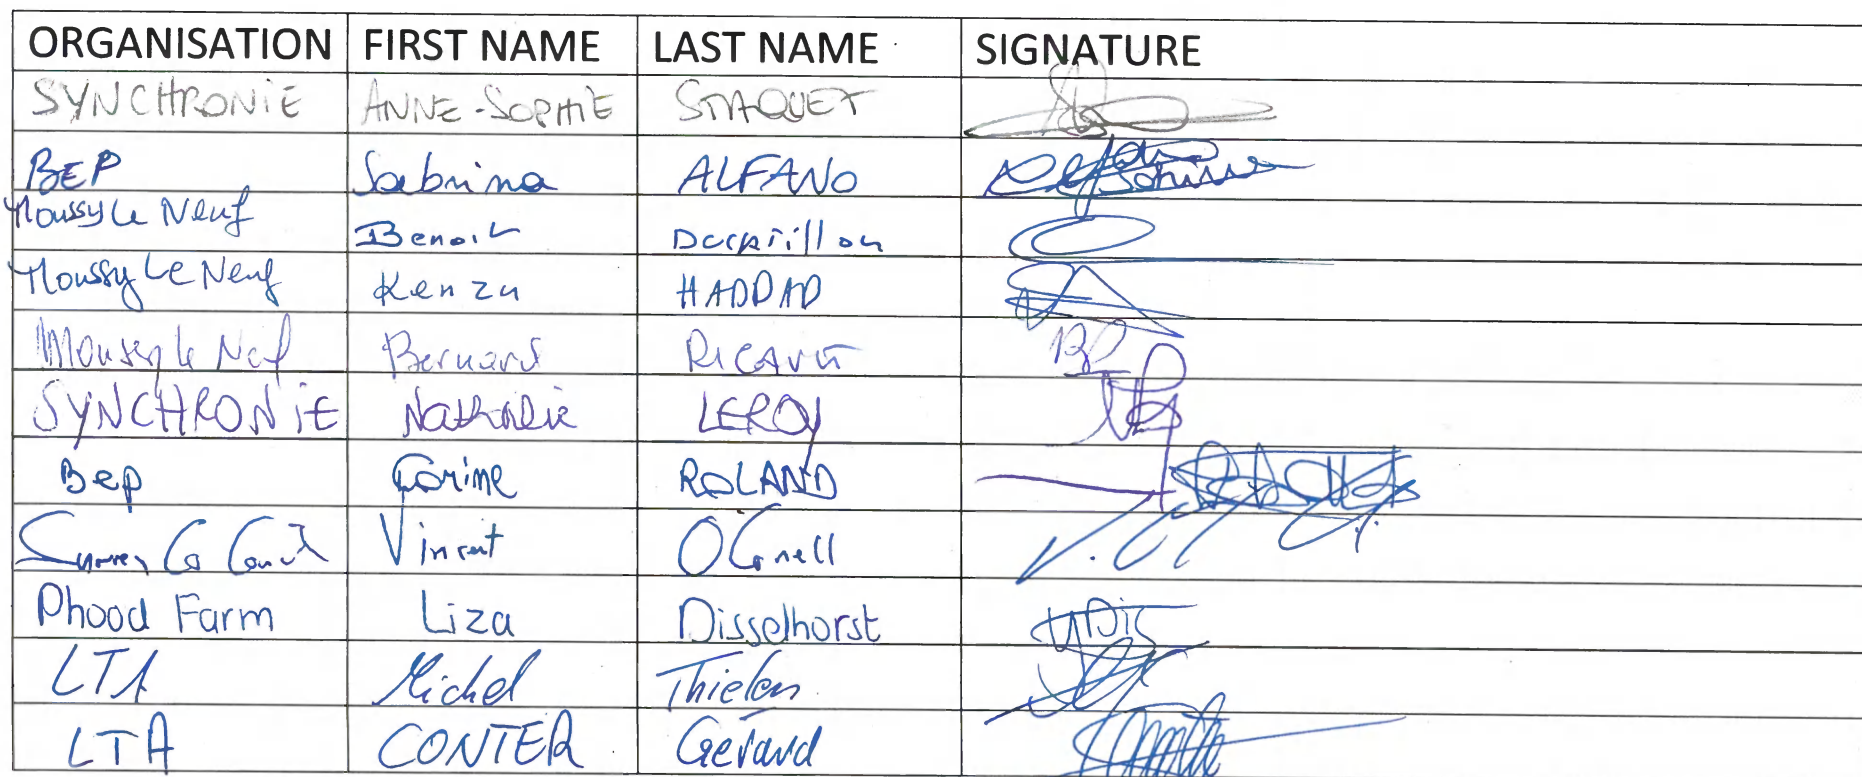 ORGANISATION FIRST NAME LAST NAME SIGNATURE
SYNCHRONiE ANNE-SOPHIE STAQUET
BEP Sabrina ALFANO
Moussy Le Neuf Benoit
Moussy Le Neuf Kenza HADDAD
Moussy le Neuf Bernard RIGAULT
SYNCHRONiE Nathalie LEROY
Bep Corine ROLAND
Surrey Co Vincent O'Connell
Phood Farm Liza Disselhorst
LTA Michel Thielen
LTA CONTER Gérard